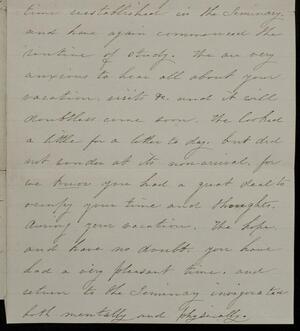 time reestablished in the Seminary,
and have again commenced the
routine of study. We are very
anxious to hear all about your
vacation, visits &c. and it will
doubtless come soon. We looked
a little for a letter to day, but did
not wonder at its non-arrival, for
we know you had a great deal to
occupy your time and thoughts,
during your vacation. We hope,
and have no doubt, you have
had a very pleasant time, and
return to the Seminary invigorated
both mentally and physically.